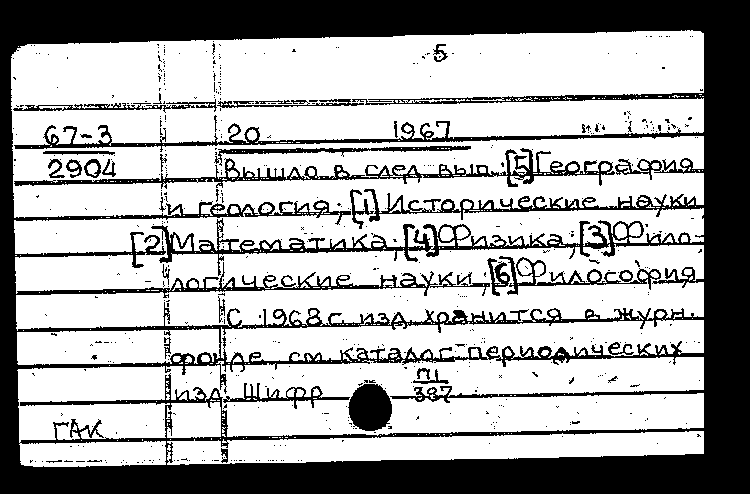 5
67-3 20 1967
2904 Вышло в след. вып.: [5] География
и геология; [1] Исторические науки
[2] Математика; [4] Физика; [3] Фило-
логические науки; [6] Философия
С 1968 г. изд. хранится в журн.
фонде, см. каталог периодических
изд. Шифр П1/387
ГАК